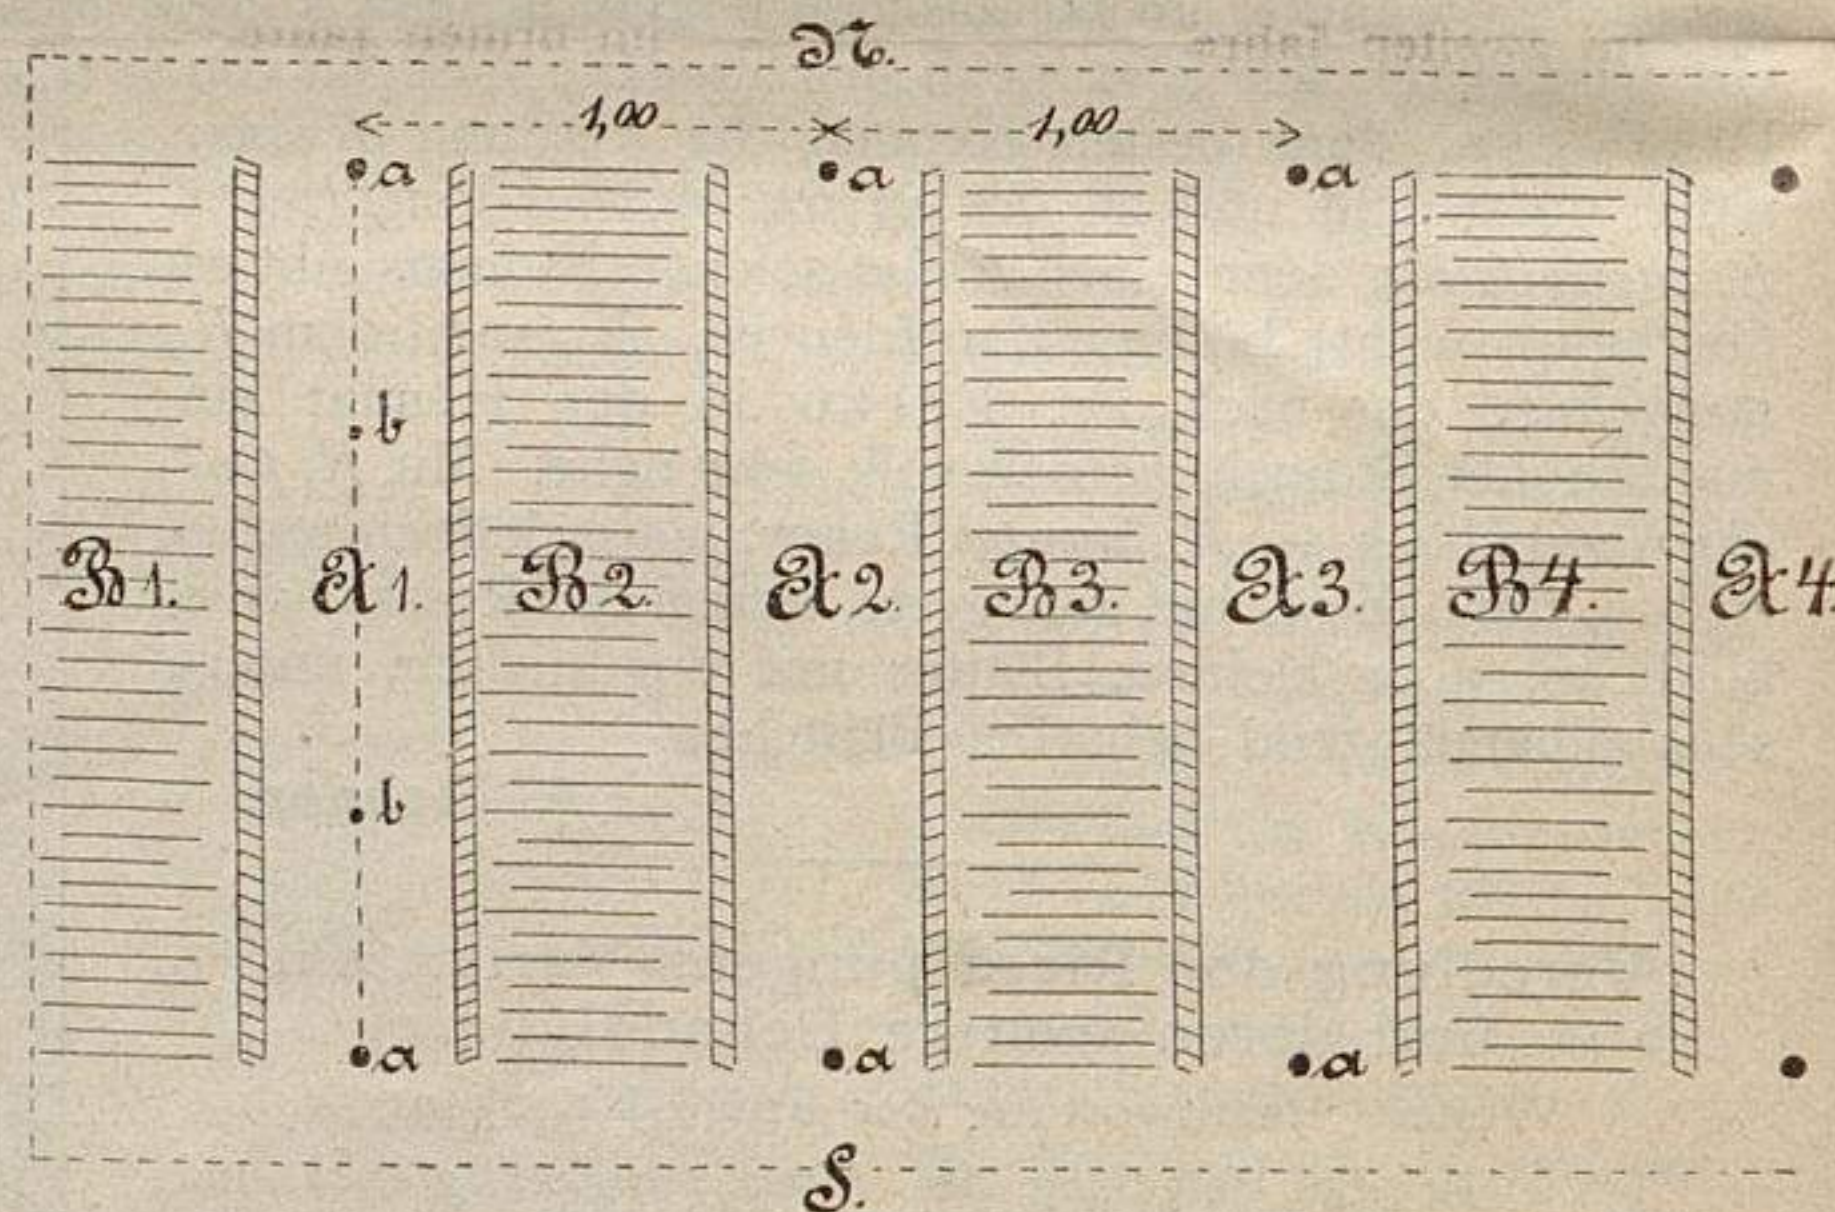 N.
1,00 1,00
a a a
b
B 1. A 1. B 2. A 2. B 3. A 3. B 4. A 4.
b
a a a
S.